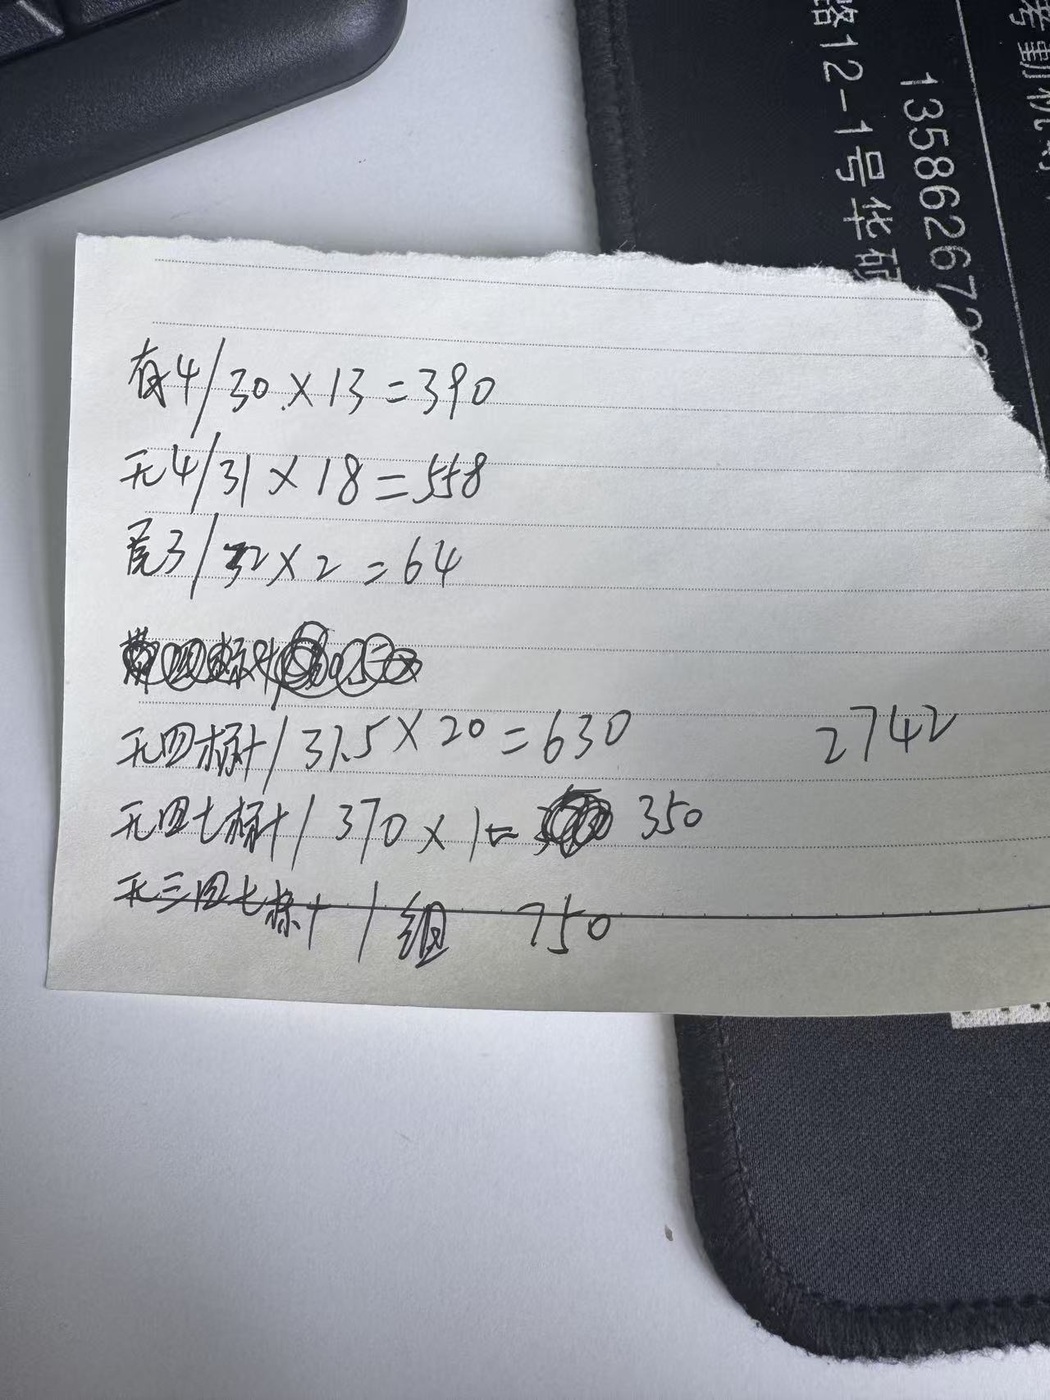 路12-1号华硕
135862672
有4/30×13=390
无4/31×18=558
亮3/32×2=64
无四标十/31.5×20=630
2742
无四七标十/370×1=350
无三四七标十/组 750